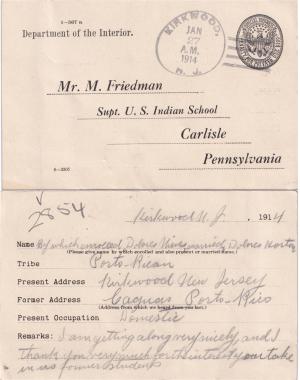 5—1407 a
Department of the Interior.
KIRKWOOD,
JAN
27
A.M.
1914
N. J.
Mr. M. Friedman
Supt. U. S. Indian School
Carlisle
Pennsylvania
6—2305
2854
Kirkwood N. J. , 1914
Name By which enrolled Dolores Nieves married Dolores
(Please give name by which enrolled and also present or married name.)
Tribe Porto-Rican
Present Address Kirkwood New Jersey
Former Address Caguas Porto-Rico
(Address from which we heard from you last.)
Present Occupation Domestic
Remarks: I am getting along very nicely, and I
thank you very much for the interest you take
in us former students